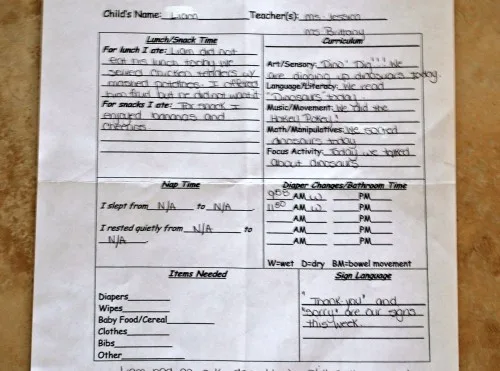 Child's Name: Liam Teacher(s): ms. Jessica
ms. Brittany
Lunch/Snack Time
For lunch I ate: Liam did not
eat his lunch today. We
served chicken tenders w/
mashed potatoes. I offered
him fruit but he did not want it
For snacks I ate: For snack I
enjoyed bananas and
Cheerios
Curriculum
Art/Sensory: "Dino" Dig""! We
are digging up dinosaurs today.
Language/Literacy: We read
"Dinosaurs today!
Music/Movement: We did the
Hokey Pokey!
Math/Manipulatives: We sorted
dinosaurs today
Focus Activity: Today we talked
about dinosaurs
Nap Time
I slept from N/A to N/A.
I rested quietly from N/A to
N/A.
Diaper Changes/Bathroom Time
9:55 AM W PM
11:50 AM W PM
AM PM
AM PM
AM PM
W=wet D=dry BM=bowel movement
Items Needed
Diapers
Wipes
Baby Food/Cereal
Clothes
Bibs
Other
Sign Language
"Thank you" and
"sorry" are our signs
this week.